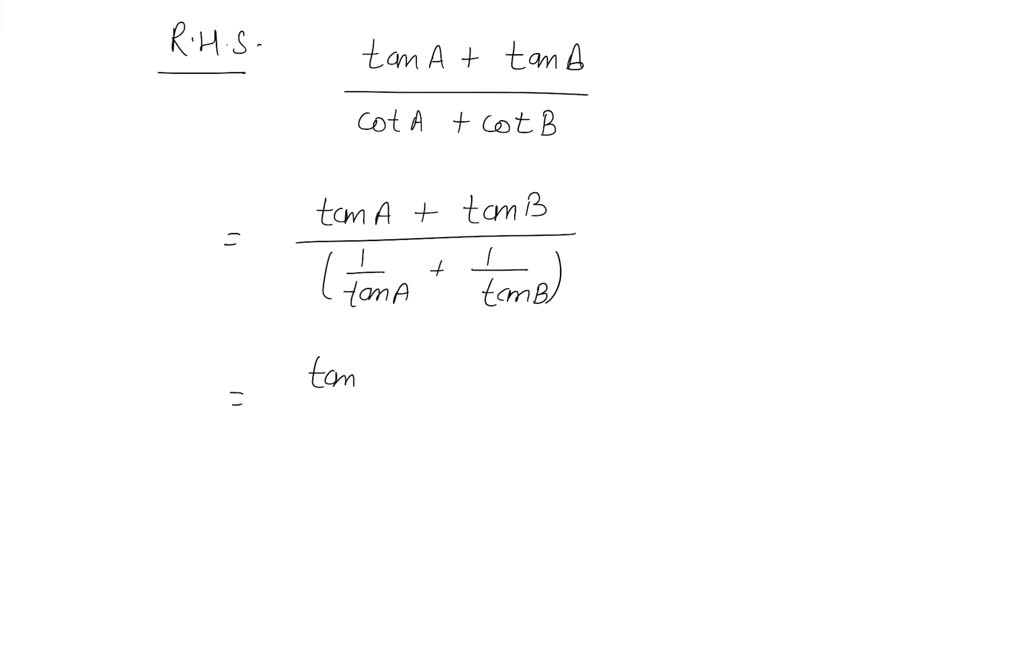 R.H.S.
tan A + tan B
cot A + cot B
tan A + tan B
=
( 1/tan A + 1/tan B )
tan
=